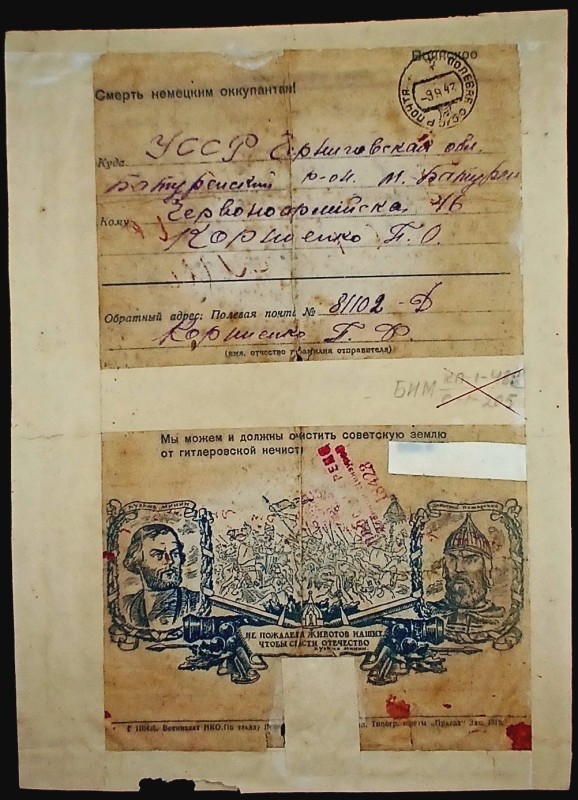 Воинское
Смерть немецким оккупантам!
ПОЛЕВАЯ ПОЧТА
Куда УССР Черниговская обл.
Батуринский р-он. м. Батурин
Червоноармийска 46
Кому Корниенко П. О.
Обратный адрес: Полевая почта № 81102-Д
Корниенко Г.
(имя, отчество и фамилия отправителя)
БИМ
Мы можем и должны очистить советскую землю
от гитлеровской нечисти
КУЗЬМА МИНИН
НЕ ПОЖАЛЕЕМ ЖИВОТОВ НАШИХ,
ЧТОБЫ СПАСТИ ОТЕЧЕСТВО
КУЗЬМА МИНИН
Воениздат НКО. По заказу
Типогр. газеты «Правда» Зак.